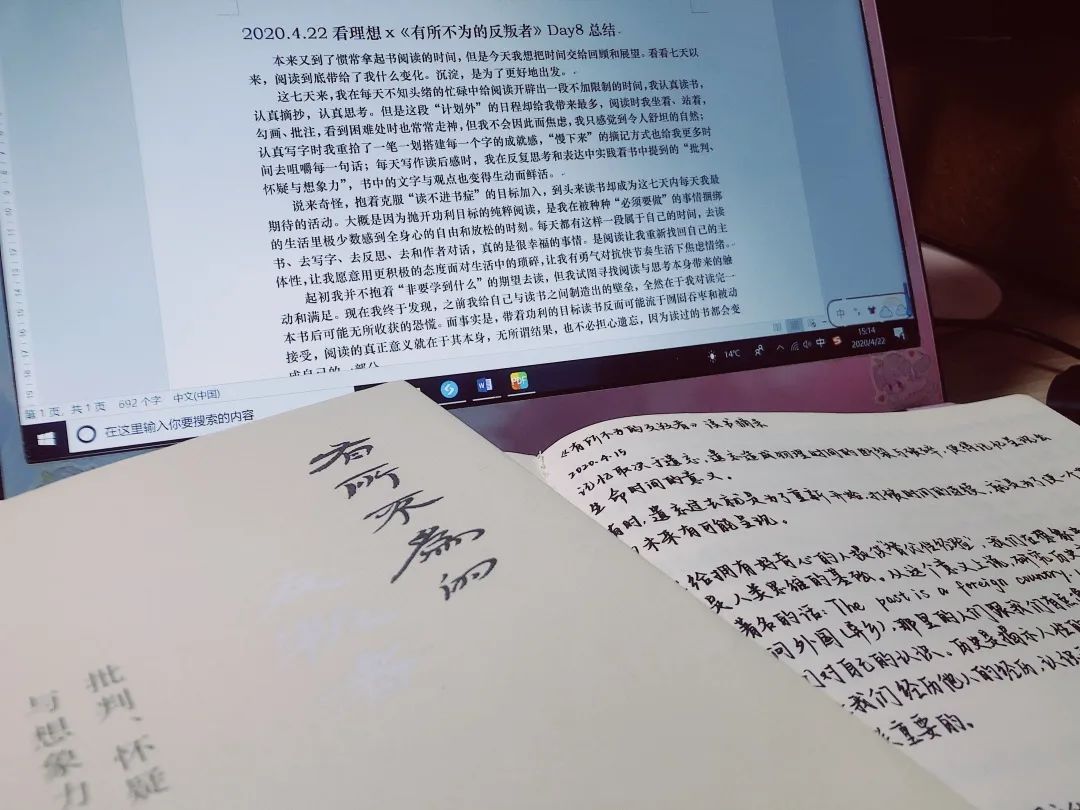 2020.4.22 看理想 x《有所不为的反叛者》Day8 总结
本来又到了惯常拿起书阅读的时间，但是今天我想把时间交给回顾和展望。看看七天以
来，阅读到底带给了我什么变化。沉淀，是为了更好地出发。
这七天来，我在每天不知头绪的忙碌中给阅读开辟出一段不加限制的时间，我认真读书，
认真摘抄，认真思考。但是这段“计划外”的日程却给我带来最多，阅读时我坐着、站着，
勾画、批注，看到困难处时也常常走神，但我不会因此而焦虑，我只感觉到令人舒坦的自然；
认真写字时我重拾了一笔一划搭建每一个字的成就感，“慢下来”的摘记方式也给我更多时
间去咀嚼每一句话；每天写作读后感时，我在反复思考和表达中实践着书中提到的“批判、
怀疑与想象力”，书中的文字与观点也变得生动而鲜活。
说来奇怪，抱着克服“读不进书症”的目标加入，到头来读书却成为这七天内每天我最
期待的活动。大概是因为抛开功利目标的纯粹阅读，是我在被种种“必须要做”的事情捆绑
的生活里极少数感到全身心的自由和放松的时刻。每天都有这样一段属于自己的时间，去读
书、去写字、去反思、去和作者对话，真的是很幸福的事情。是阅读让我重新找回自己的主
体性，让我愿意用更积极的态度面对生活中的琐碎，让我有勇气对抗快节奏生活下焦虑情绪。
起初我并不抱着“非要学到什么”的期望去读，但我试图寻找阅读与思考本身带来的触
动和满足。现在我终于发现，之前我给自己与读书之间制造出的壁垒，全然在于我对读完一
本书后可能无所收获的恐慌。而事实是，带着功利的目标读书反而可能流于囫囵吞枣和被动
接受，阅读的真正意义就在于其本身，无所谓结果，也不必担心遗忘，因为读过的书都会变
成自己的一部分
第1页，共1页 692个字 中文(中国)
在这里输入你要搜索的内容
14°C
中
15:14
2020/4/22
有所不為的
批判、怀疑
与想象力
《有所不为的反叛者》读书摘录
2020.4.15
记忆取决于遗忘，遗忘造成物理时间的断裂
生命时间的意义。
有时，遗忘过去就是为了重新开始，打破时间的连续，就是为了使一
未来有可能呈现。
给拥有好奇心的人提供替代性经验，我们在
是人类思维的基础。从这个意义上说，研究历史
著名的话：The past is a foreign country,
问外国(异乡)，那里的人们跟我们有点
们对自己的认识。历史是揭示人性的
我们经历他人的经历，认识
重要的。